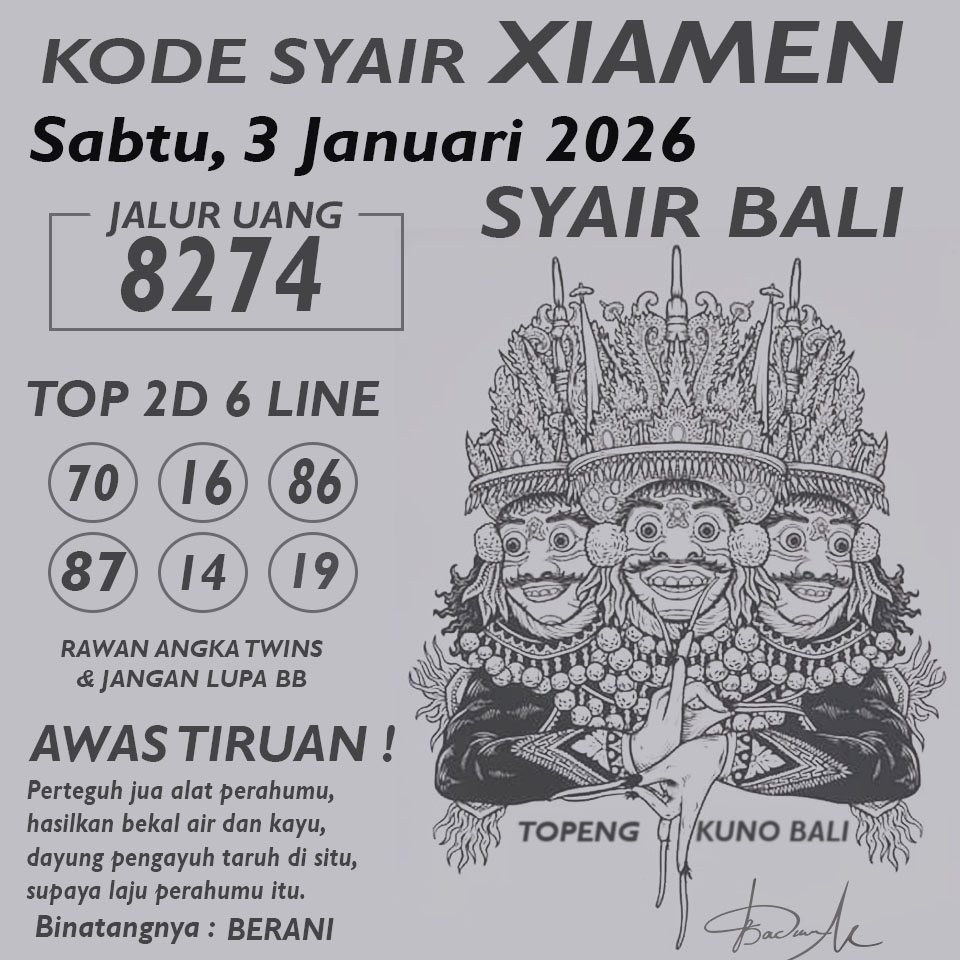 KODE SYAIR XIAMEN
Sabtu, 3 Januari 2026
SYAIR BALI
JALUR UANG
8274
TOP 2D 6 LINE
70 16 86
87 14 19
RAWAN ANGKA TWINS
& JANGAN LUPA BB
AWAS TIRUAN !
Perteguh jua alat perahumu,
hasilkan bekal air dan kayu,
dayung pengayuh taruh di situ,
supaya laju perahumu itu.
Binatangnya : BERANI
TOPENG KUNO BALI